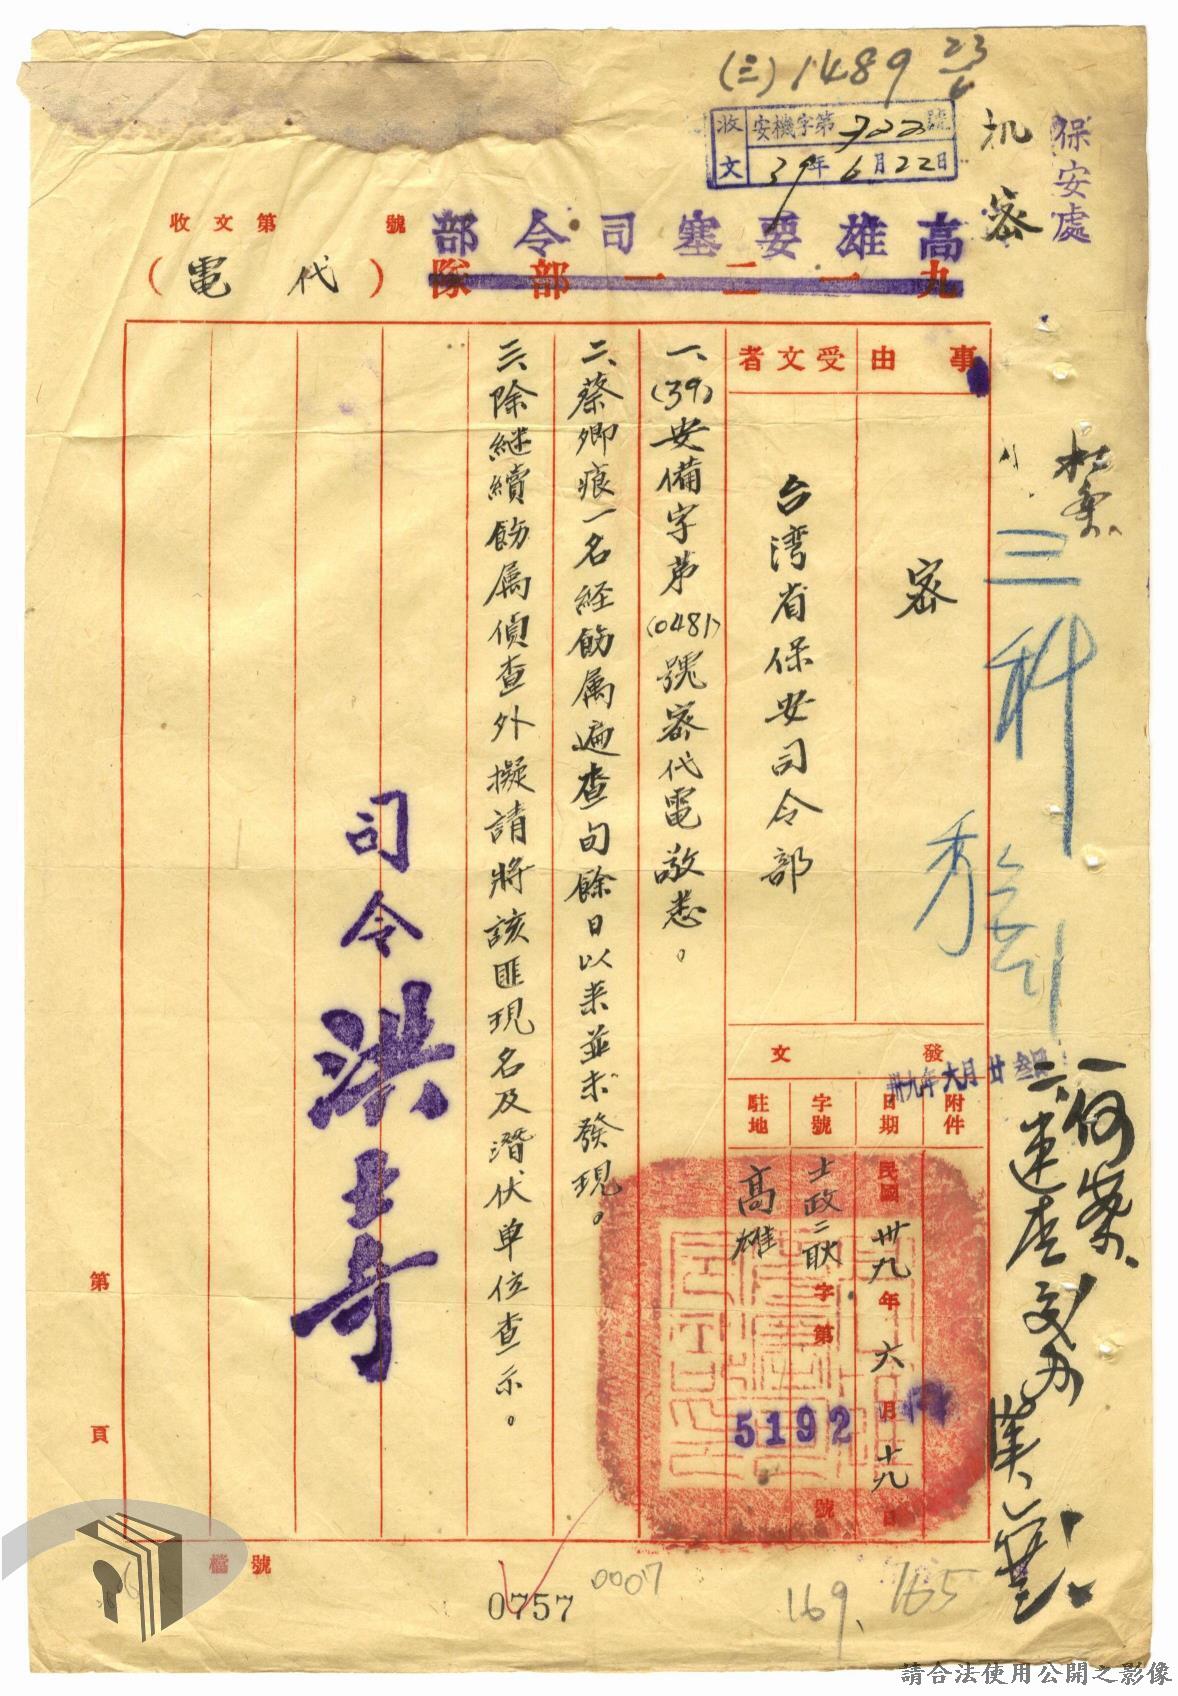 (三)1489 23/6
收文
安機字第722號
39年6月22日
机密
保安處
高雄要塞司令部
九一二一部隊
(代電)
收文第 號
事由
密
受文者
台湾省保安司令部
發文
附件
日期
民國卅九年六月十九日
卅九年六月廿叁日
字號
士政二耿字第5192號
駐地
高雄
一、(39)安備字第(0481)號密代電敬悉。
二、蔡卿痕一名経飭属遍查旬餘日以来並未發現。
三、除継續飭属偵查外擬請將該匪現名及潛伏单位查示。
司令洪士奇
三科
一何案
第 頁
檔號
0757
0007
169.
165
請合法使用公開之影像